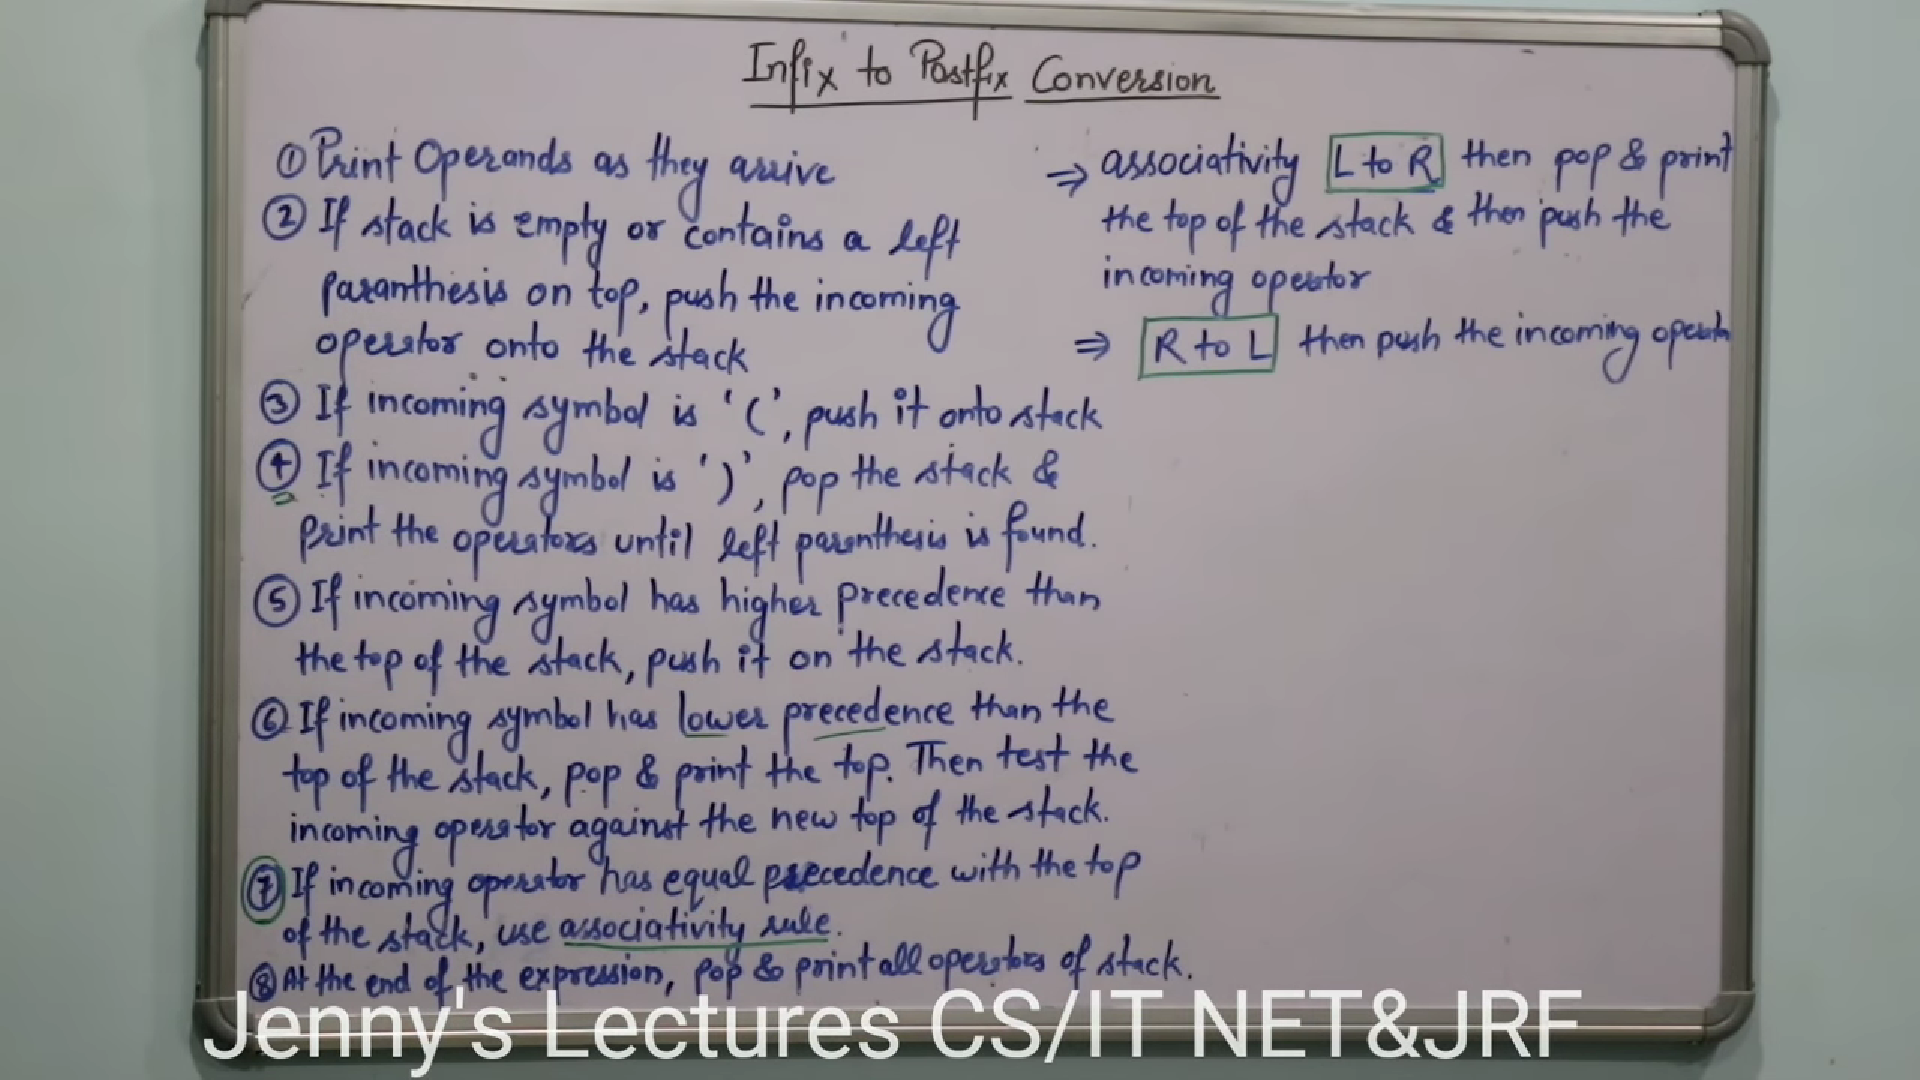 Infix to Postfix Conversion
① Print Operands as they arrive
② If stack is empty or contains a left
paranthesis on top, push the incoming
operator onto the stack
③ If incoming symbol is '(', push it onto stack
④ If incoming symbol is ')', pop the stack &
print the operators until left paranthesis is found.
⑤ If incoming symbol has higher precedence than
the top of the stack, push it on the stack.
⑥ If incoming symbol has lower precedence than the
top of the stack, pop & print the top. Then test the
incoming operator against the new top of the stack.
⑦ If incoming operator has equal precedence with the top
of the stack, use associativity rule.
⑧ At the end of the expression, pop & print all operators of stack.
⇒ associativity L to R then pop & print
the top of the stack & then push the
incoming opeator
⇒ R to L then push the incoming
Jenny's Lectures CS/IT NET&JRF